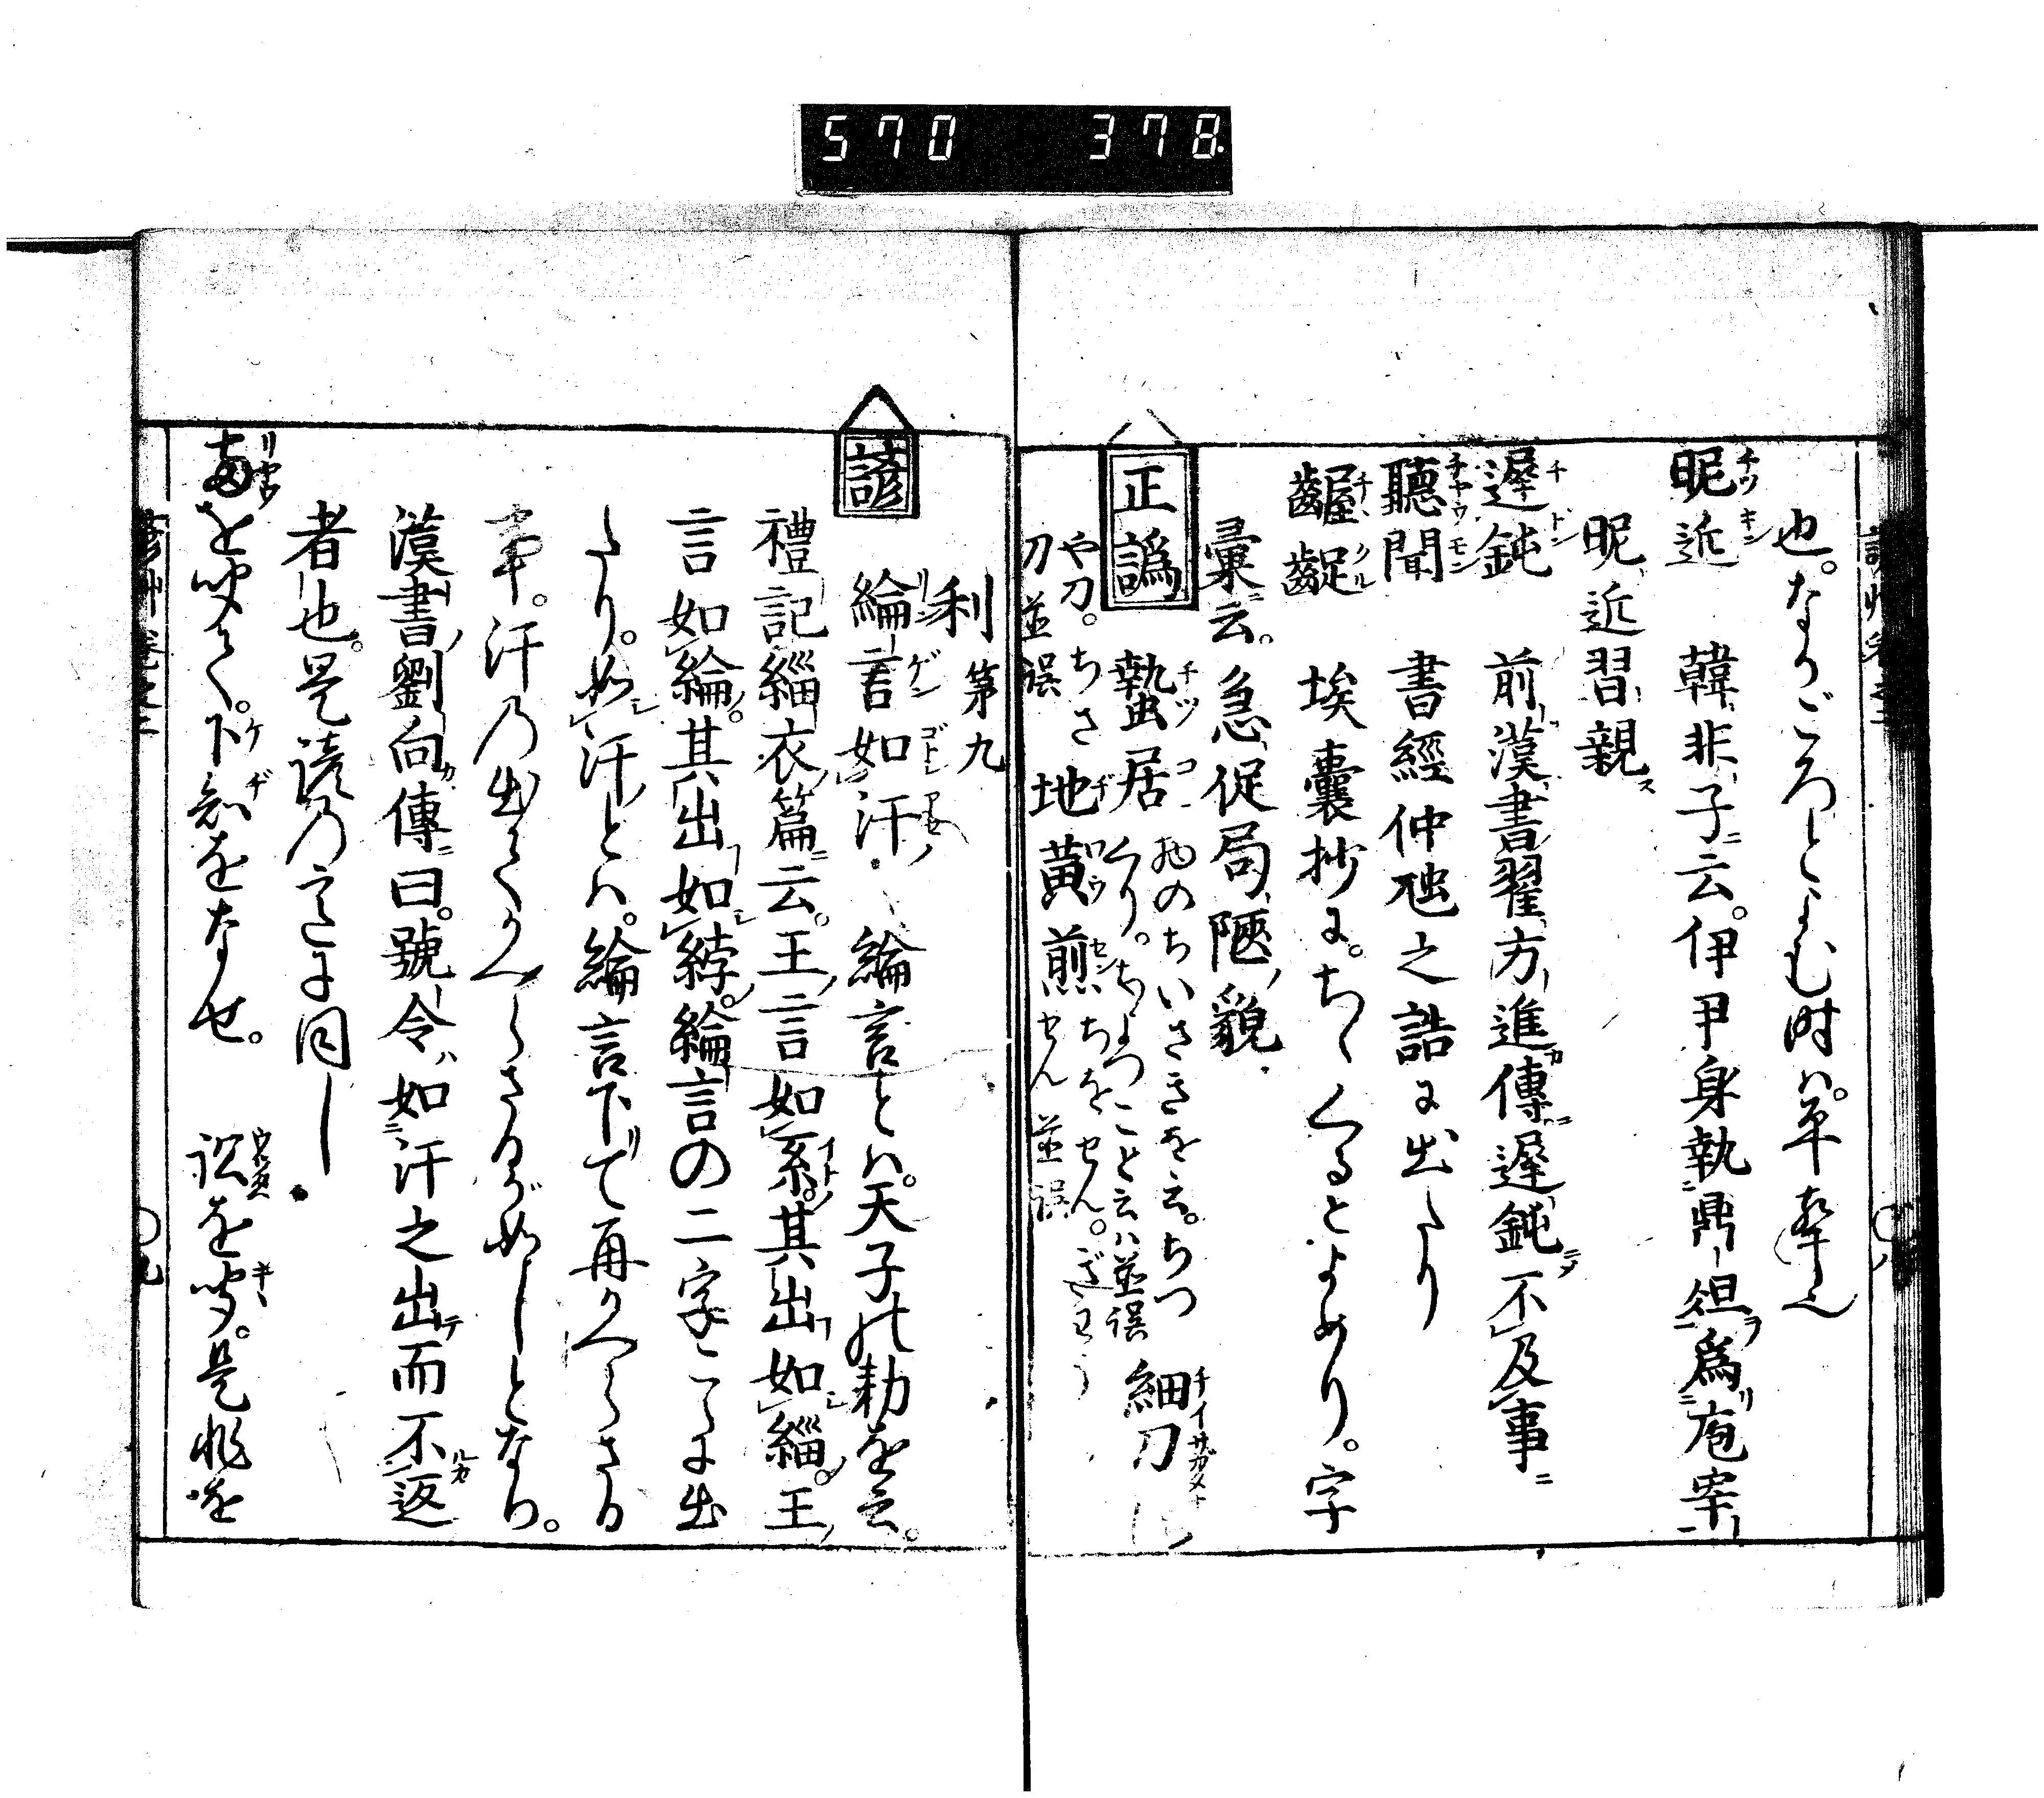 570 378
也。なりごろとよむ時ハ。卒
昵近 韓非子云。伊尹身執鼎俎爲庖宰
昵近習親
遲鈍 前漢書翟方進傳遲鈍不及事
聽聞 書經仲虺之誥に出たり
齷齪 埃囊抄に。ちゝくるとよめり。字
彙云。急促局陿貌
正譌 蟄居 ものちいさきを云。ちつ
くり。ちよつこと云ハ並誤 細刀
や刀。ちさ
刀並誤 地黄煎 ちをせん。
せん並誤
利第九
諺 綸言如汗 綸言とハ。天子の勅を云。
禮記緇衣篇云。王言如糸。其出如綸。王
言如綸。其出如綍。綸言の二字こゝに出
たり。如汗とハ。綸言下て再かへらさる
事。汗の出てかへらさるが如しとなり。
漢書劉向傳曰。號令如汗之出而不返
者也。是諺の意に同し
両を聞て。下知をなせ。 訟を聞。是非を